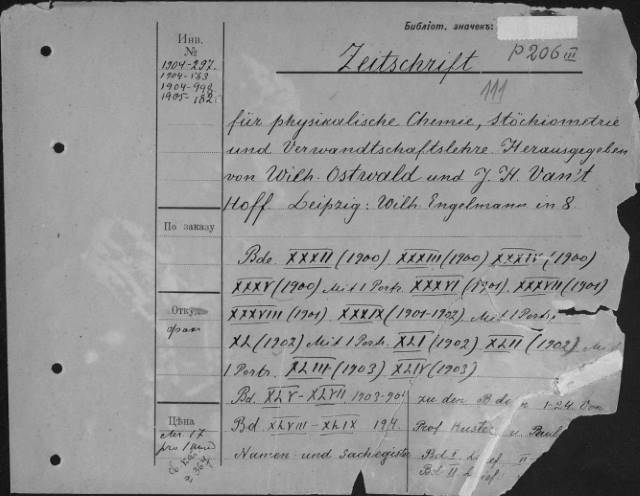 Библіот. значекъ:
P 206 III
Инв.
№
1904-297.
1904-163
1904-999
1905-182
Zeitschrift
111
für physikalische Chemie, Stöchiometrie
und Verwandtschaftslehre. Herausgegeben
von Wilh. Ostwald und J. H. Van't
Hoff. Leipzig: Wilh. Engelmann in 8.
По заказу
Bde. XXXII (1900) XXXIII (1900) XXXIV (1900)
XXXV (1900) Mit 1 Portr. XXXVI (1901) XXXVII (1901)
XXXVIII (1901) XXXIX (1901-1902) Mit 1 Portr.
XL (1902) Mit 1 Portr. XLI (1902) XLII (1902) Mit
1 Portr. XLIII (1903) XLIV (1903)
Откуд
Bd. XLV - XLVII 1903-904
zu den Bden 1-24. Von
Цѣна
Bd XLVIII - XLIX 194
Prof u. Paul
Namen- und Sachregister
Bd I
Bd II